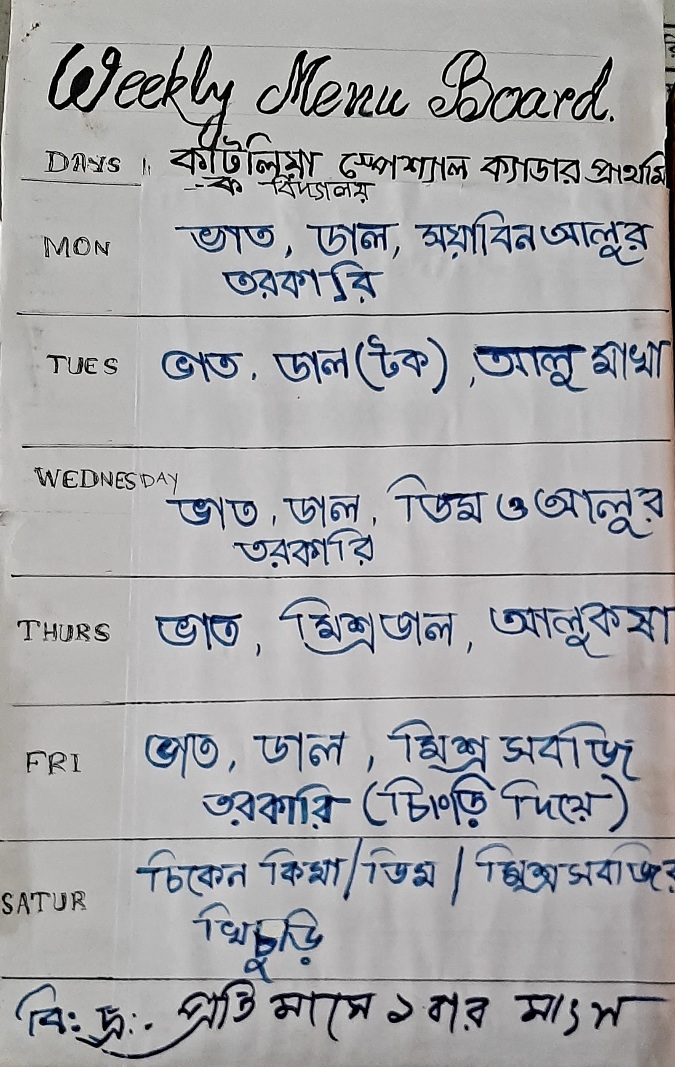 Weekly Menu Board.
DAYS কাটলিয়া স্পেশ্যাল ক্যাডার প্রাথমি
-ক বিদ্যালয়
MON ভাত, ডাল, সয়াবিন আলুর
তরকারি
TUES ভাত, ডাল (টক), আলু মাখা
WEDNESDAY ভাত, ডাল, ডিম ও আলুর
তরকারি
THURS ভাত, মিশ্র ডাল, আলুকষা
FRI ভাত, ডাল, মিশ্র সবজি
তরকারি (চিংড়ি দিয়ে)
SATUR চিকেন কিমা/ডিম/মিশ্র সবজির
খিচুড়ি
বি: দ্র:- প্রতি মাসে ১ বার মাংস